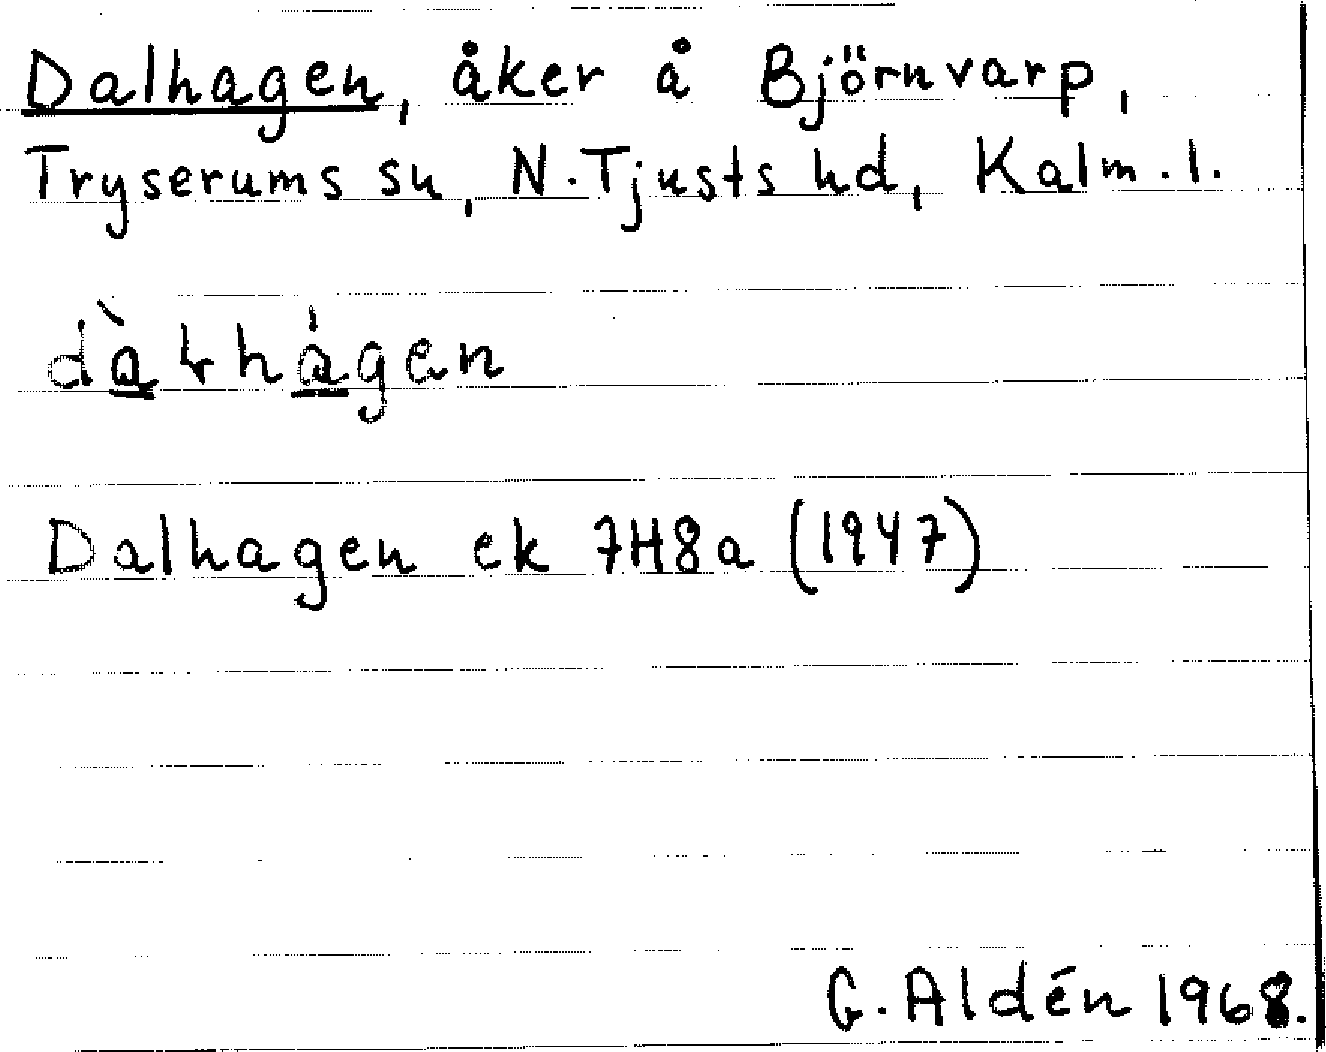 Dalhagen, åker å Björnvarp,
Tryserums sn, N. Tjusts hd, Kalm. l.
dàɫhágen
Dalhagen ek 7H8a (1947)
G. Aldén 1968.